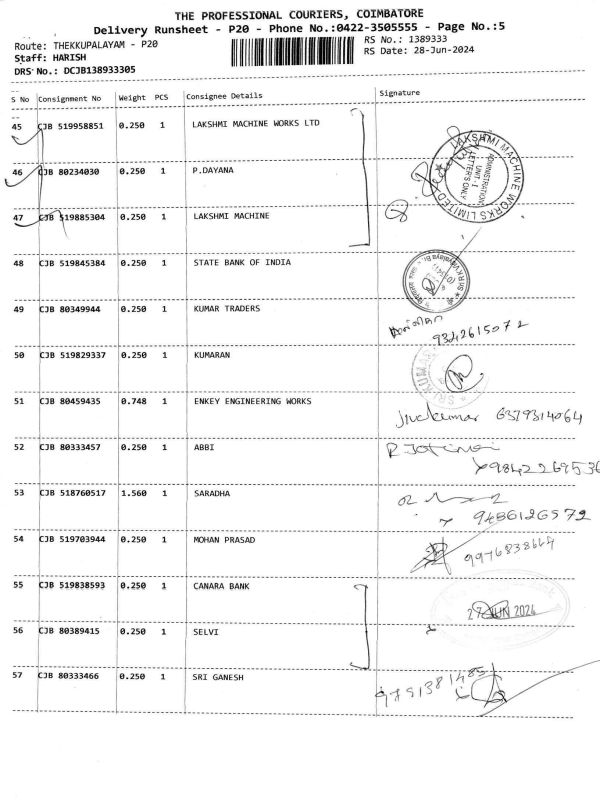 THE PROFESSIONAL COURIERS, COIMBATORE
Delivery Runsheet - P20 - Phone No.:0422-3505555 - Page No.:5
Route: THEKKUPALAYAM - P20
RS No.: 1389333
Staff: HARISH
RS Date: 28-Jun-2024
DRS No.: DCJB138933305
S No Consignment No Weight PCS Consignee Details Signature
45 CJB 519958851 0.250 1 LAKSHMI MACHINE WORKS LTD
LAKSHMI MACHINE WORKS LIMITED
ADMINISTRATION
UNIT - I
LETTERS ONLY
46 CJB 80234030 0.250 1 P.DAYANA
47 CJB 519885304 0.250 1 LAKSHMI MACHINE
48 CJB 519845384 0.250 1 STATE BANK OF INDIA
49 CJB 80349944 0.250 1 KUMAR TRADERS
9342615072
50 CJB 519829337 0.250 1 KUMARAN
SRI KUMAR
51 CJB 80459435 0.748 1 ENKEY ENGINEERING WORKS
Jivakumar 6379314064
52 CJB 80333457 0.250 1 ABBI
9842269536
53 CJB 518760517 1.560 1 SARADHA
9486126572
54 CJB 519703944 0.250 1 MOHAN PRASAD
9976838664
55 CJB 519838593 0.250 1 CANARA BANK
27 JUN 2024
56 CJB 80389415 0.250 1 SELVI
57 CJB 80333466 0.250 1 SRI GANESH
9791381485